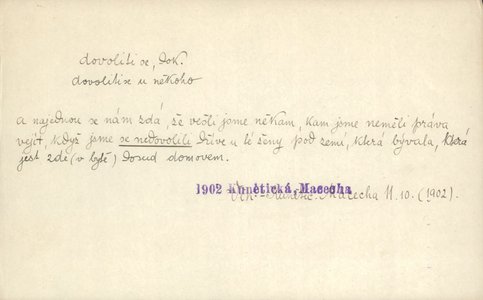 dovoliti se, dok.
dovoliti se u někoho
a najednou se nám zdá že vešli jsme někam, kam jsme neměli práva
vejít, když jsme se nedovolili dříve u té ženy pod zemí, která bývala, která
jest zde (v bytě) dosud domovem.
1902 Kunětická, Macecha
Vik. Kunětic. Macecha II. 10. (1902).